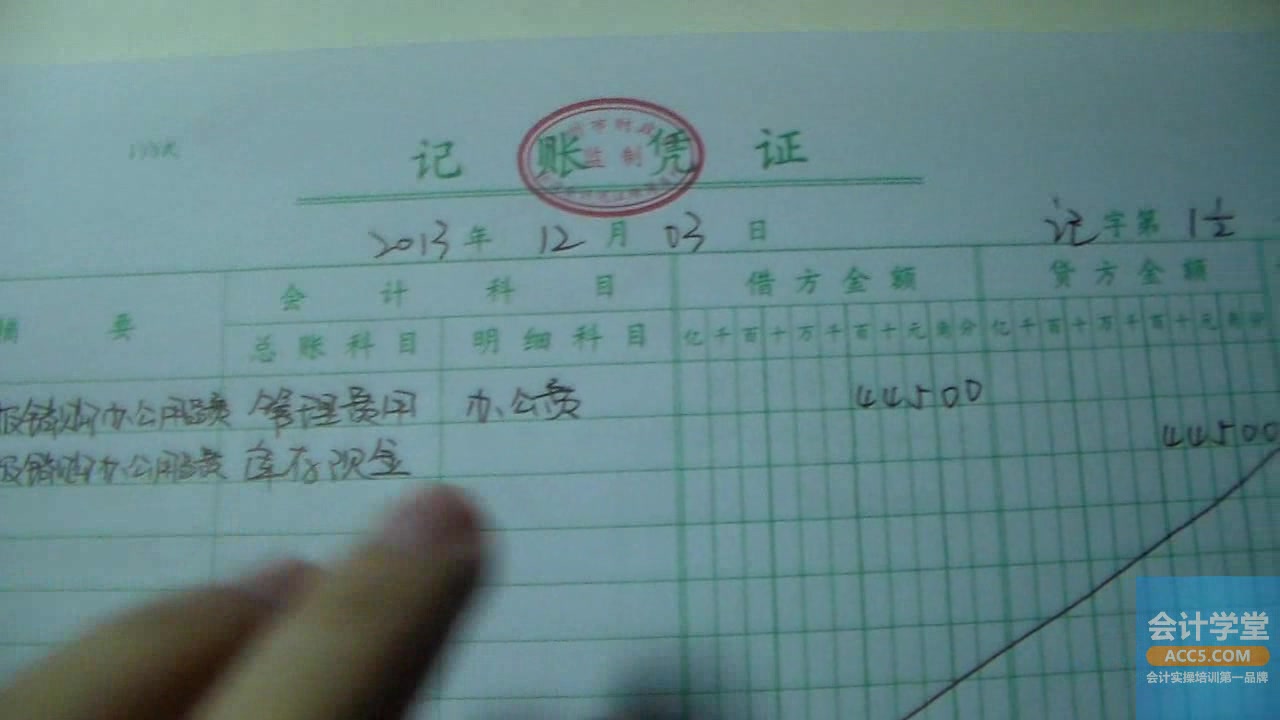 记 账 凭 证
监 制
2013 年 12 月 03 日 记 字第 1 1/2
摘 要 会 计 科 目 借 方 金 额 贷 方 金 额
总 账 科 目 明 细 科 目 亿 千 百 十 万 千 百 十 元 角 分 亿 千 百 十 万 千 百 十 元 角 分
报销购办公用品费 管理费用 办公费 44500
报销购办公用品费 库存现金 44500
会计学堂
ACC5.COM
会计实操培训第一品牌